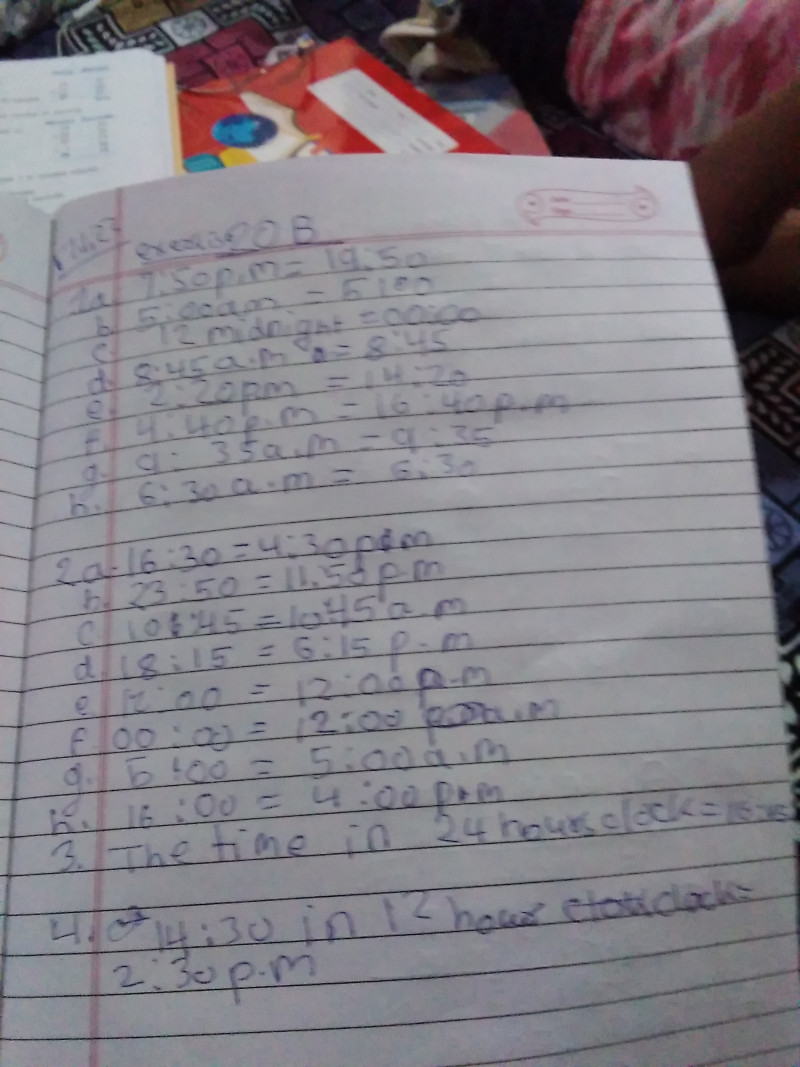 exercise 20 B
1a. 7:50p.m = 19:50
b. 5:00am = 5:00
c. 12 midnight = 00:00
d. 8:45a.m = 8:45
e. 2:20pm = 14:20
f. 4:40p.m = 16:40p.m
g. 9: 35a.m = 9:35
h. 6:30a.m = 6:30
2a. 16:30 = 4:30p.m
b. 23:50 = 11:50p.m
c. 10:45 = 1045a.m
d. 18:15 = 6:15p.m
e. 12:00 = 12:00p.m
f. 00:00 = 12:00 a.m
g. 5:00 = 5:00a.m
h. 16:00 = 4:00p.m
3. The time in 24 hours clock =
4. 14:30 in 12 hour clock=
2:30p.m